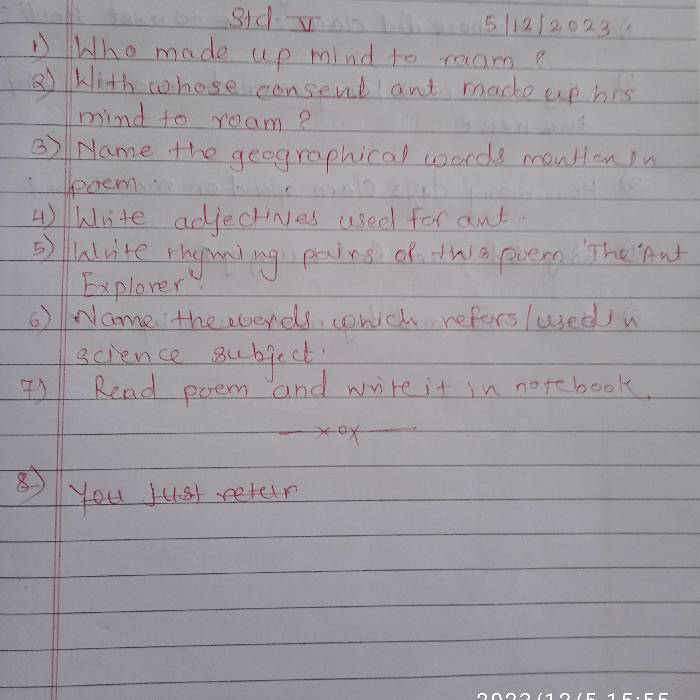 Std V 5/12/2023
1) Who made up mind to roam?
2) With whose consent ant made up his
mind to roam?
3) Name the geographical words mention in
poem.
4) Write adjectives used for ant.
5) Write rhyming pairs of this poem 'The Ant
Explorer'.
6) Name the words which refers/used in
science subject.
7) Read poem and write it in notebook.
— x ox —
8) You just retur
2023/12/5 15:55